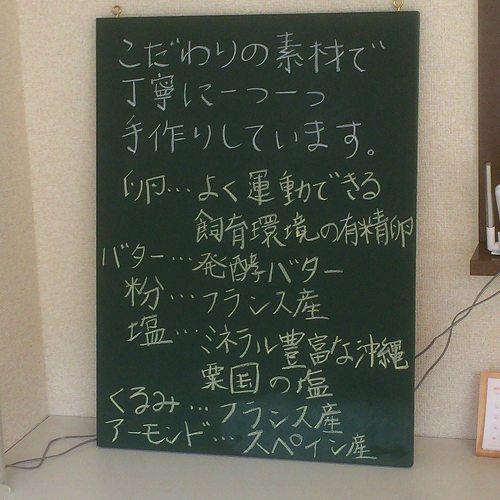 こだわりの素材で
丁寧に一つ一つ
手作りしています。
卵…よく運動できる
飼育環境の有精卵
バター…発酵バター
粉…フランス産
塩…ミネラル豊富な沖縄
粟国の塩
くるみ…フランス産
アーモンド…スペイン産